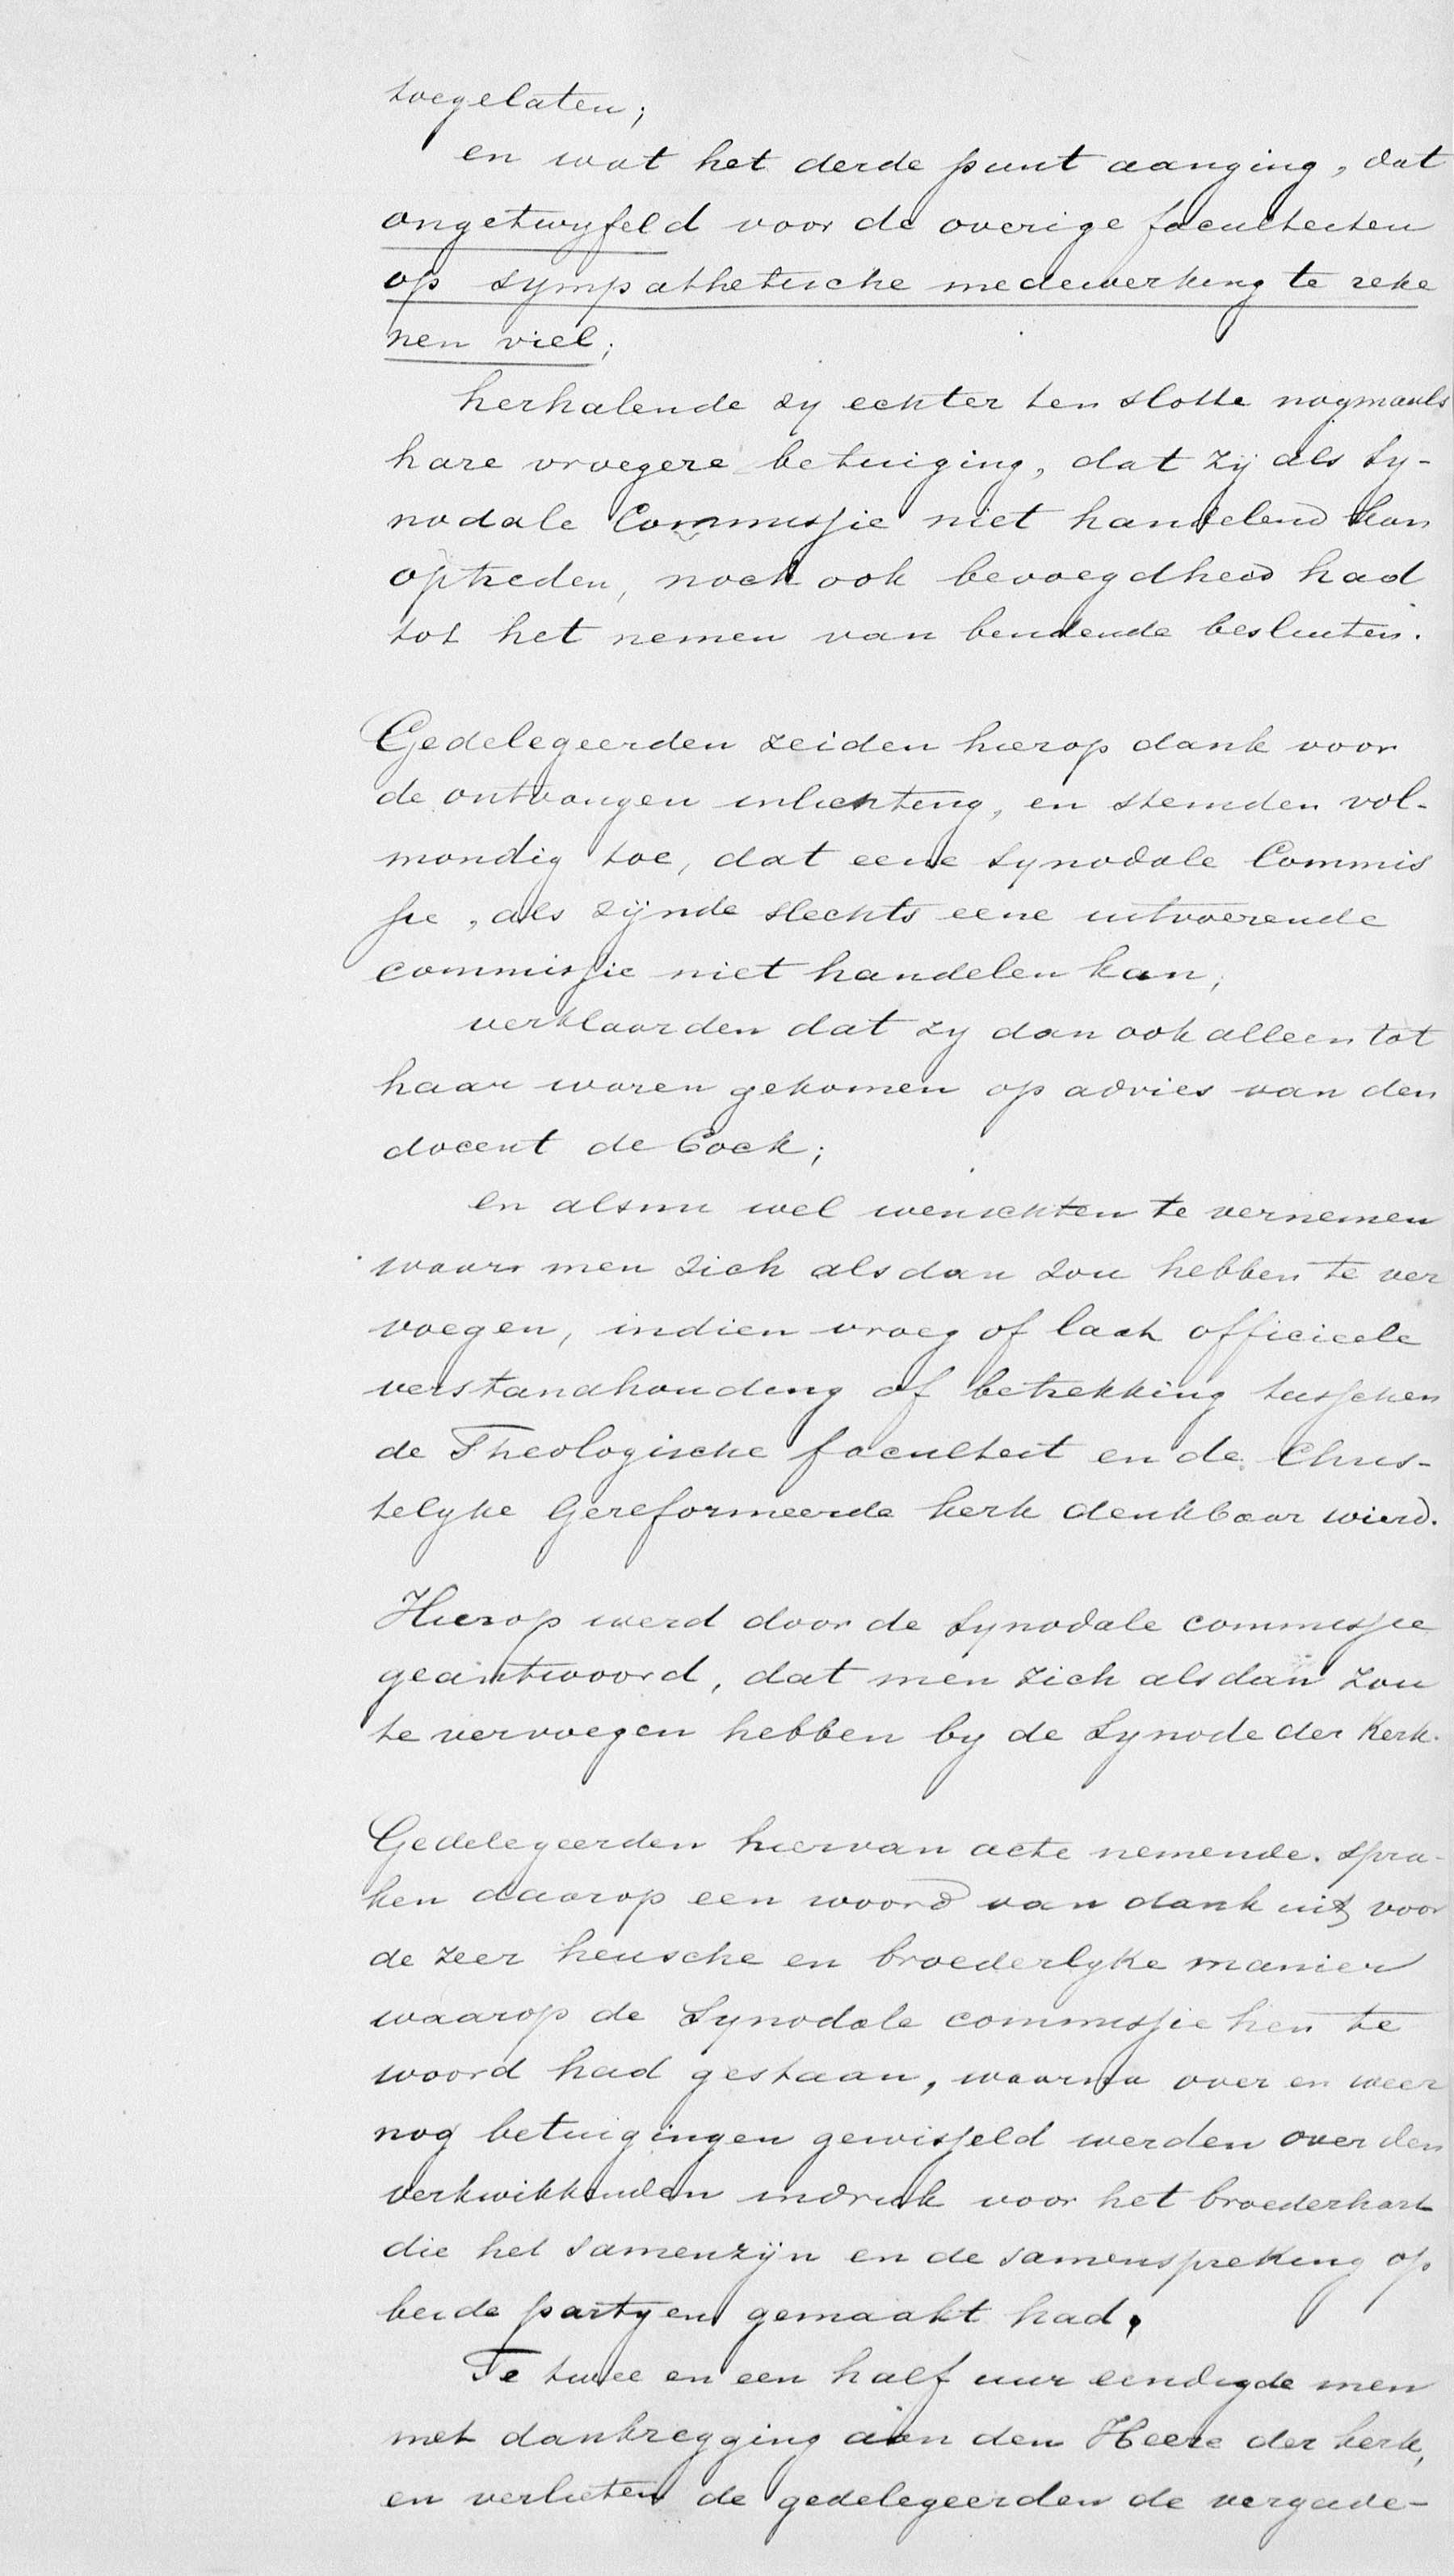 toegelaten;
en wat het derde punt aanging, dat
ongetwyfeld voor de overige faculteiten
op sympathetische medewerking te reke
nen viel;
herhalende zy echter ten slotte nogmaals
hare vroegere betuiging, dat zij als Sy-
nodale Commissie niet handelend kon
optreden, noch ook bevoegdheid had
tot het nemen van bindende besluiten.
Gedelegeerden zeiden hierop dank voor
de ontvangen inlichting, en stemden vol-
mondig toe, dat eene Synodale Commis
sie, als zijnde slechts eene uitvoerende
commissie niet handelen kan,
verklaarden dat zy dan ook alleen tot
haar waren gekomen op advies van den
docent de Cock;
en alsnu wel wenschten te vernemen
waar men zich alsdan zou hebben te ver
voegen, indien vroeg of laat officieele
verstandhouding of betrekking tusschen
de Theologische faculteit en de Chris-
telyke Gereformeerde kerk denkbaar wierd.
Hierop werd door de Synodale commissie
geantwoord, dat men zich alsdan zou
te vervoegen hebben by de Synode der Kerk.
Gedelegeerden hiervan acte nemende. spra-
ken daarop een woord van dank uit voor
de zeer heusche en broederlyke manier
waarop de Synodale commissie hen te
woord had gestaan, waarna over en weer
nog betuigingen gewisseld werden over den
verkwikkenden indruk voor het broederhart
die het samenzijn en de samenspreking op
beide partyen gemaakt had.
Te twee en een half uur eindigde men
met dankzegging aan den Heere der kerk,
en verlieten de gedelegeerden de vergade-